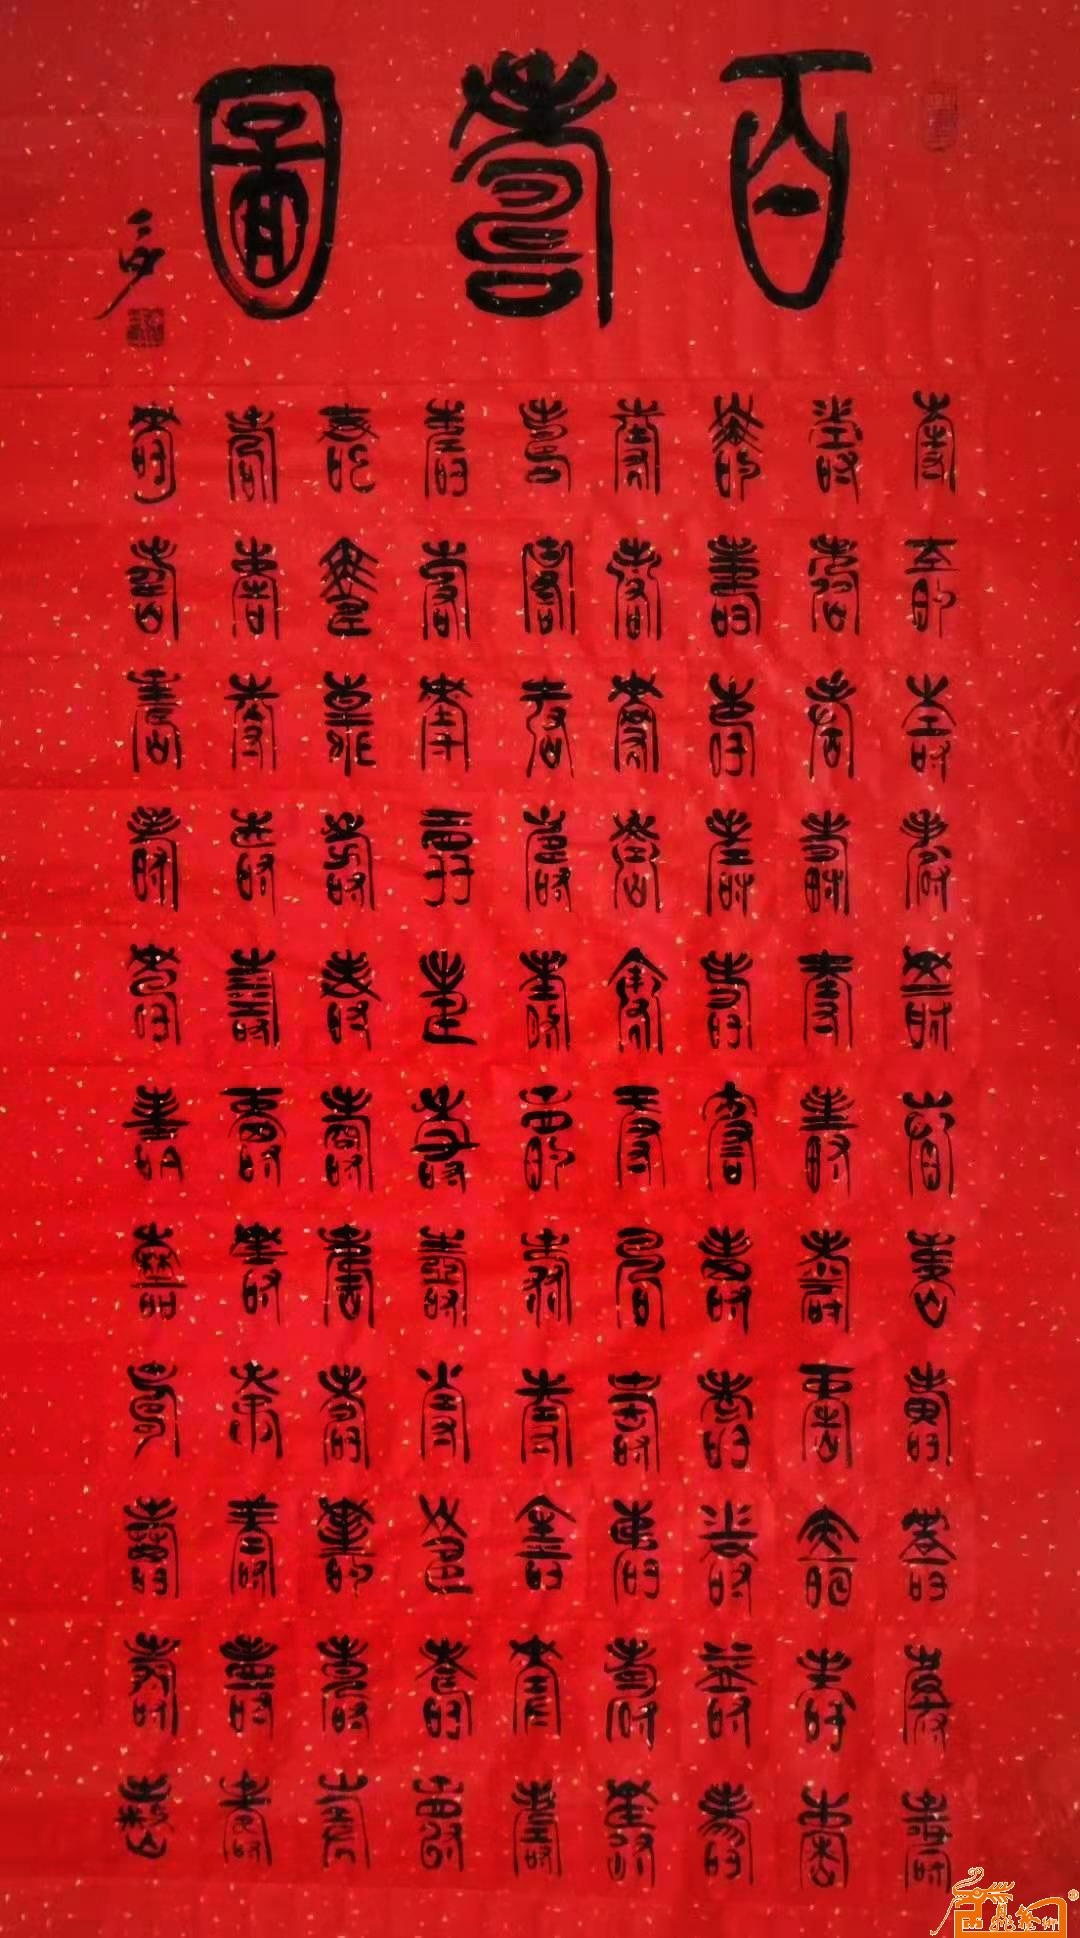 百壽圖
壽壽壽壽壽壽壽壽壽壽壽
壽壽壽壽壽壽壽壽壽壽壽
壽壽壽壽壽壽壽壽壽壽壽
壽壽壽壽壽壽壽壽壽壽壽
壽壽壽壽壽壽壽壽壽壽壽
壽壽壽壽壽壽壽壽壽壽壽
壽壽壽壽壽壽壽壽壽壽壽
壽壽壽壽壽壽壽壽壽壽壽
壽壽壽壽壽壽壽壽壽壽壽